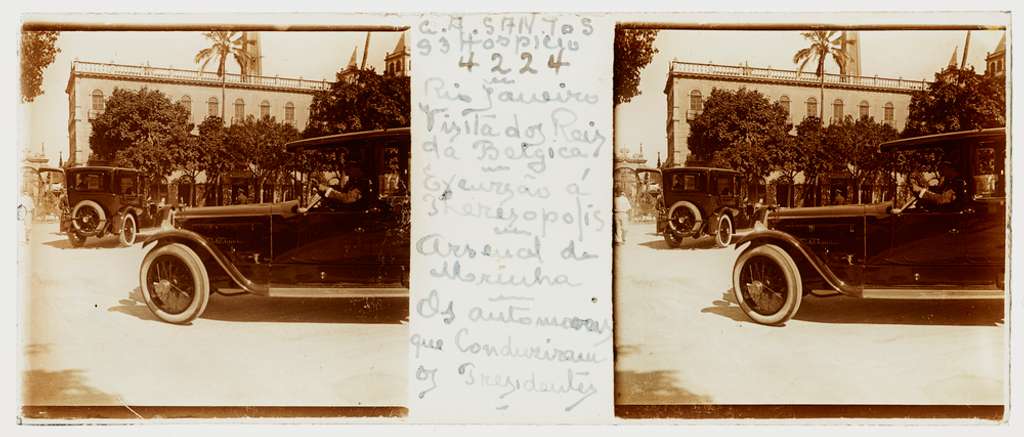 G. A. SANTOS
93 Hospicio
4224
Rio Janeiro
Visita dos Reis
da Belgica
Excursão á
Theresopolis
Arsenal de
Marinha
Os automoveis
que Conduziram
os Presidentes